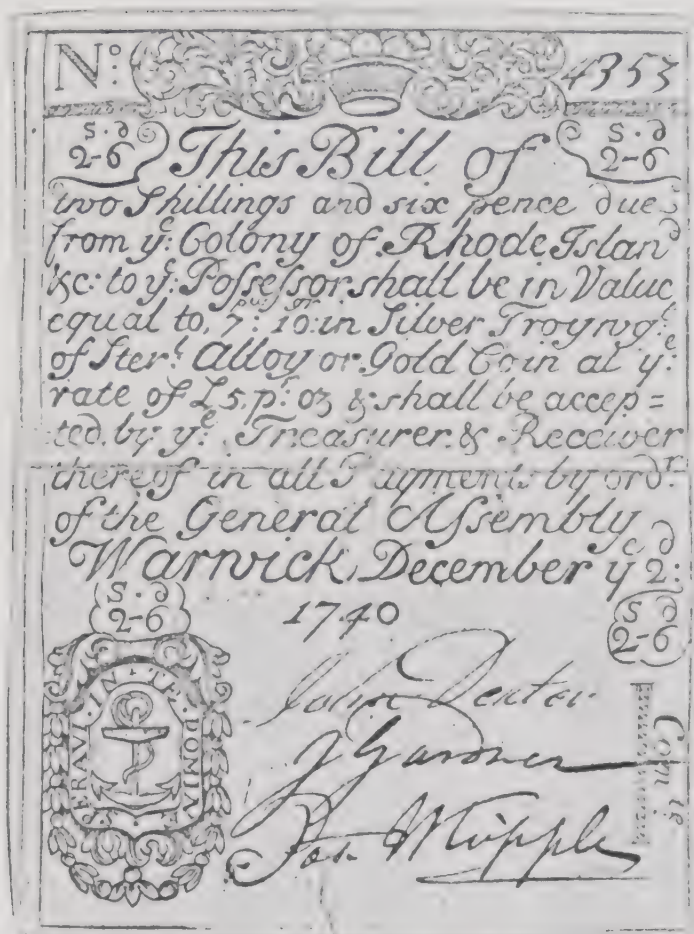 No: 4353
s. d
2-6
This Bill of
s. d
2-6
two Shillings and six pence due
from ye: Colony of Rhode Island
&c: to ye: Possessor shall be in Value
equal to, 7: 10: in Silver Troy wgt:
of Ster: Alloy or Gold Coin at ye:
rate of £5. pr: oz & shall be accep=
ted, by ye: Treasurer & Receiver
thereof in all Payments by ordr:
of the General Assembly
Warwick, December ye 2d:
s. d
2-6
1740
s d
2-6
IN TE DOMINE
SPERAVI
John Dexter
J Gardner
Jos. Whipple
Coin is